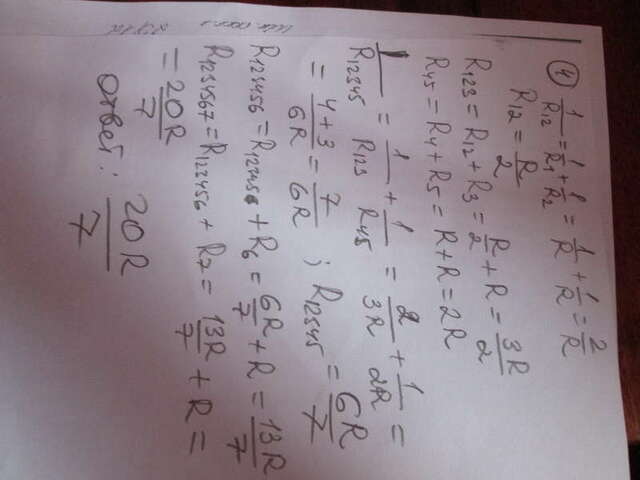 ④ 1/R12 = 1/R1 + 1/R2 = 1/R + 1/R = 2/R
R12 = R/2
R123 = R12 + R3 = R/2 + R = 3R/2
R45 = R4 + R5 = R + R = 2R
1/R12345 = 1/R123 + 1/R45 = 2/3R + 1/2R =
= 4+3/6R = 7/6R ; R12345 = 6R/7
R123456 = R12345 + R6 = 6R/7 + R = 13R/7
R1234567 = R123456 + R7 = 13R/7 + R =
= 20R/7
Ответ: 20R/7